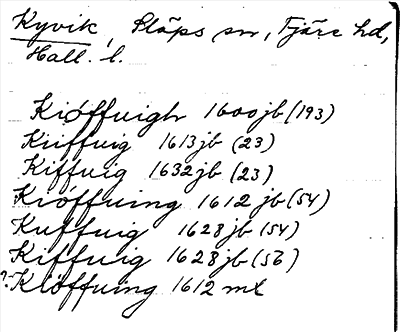 Kyvik, Släps sn, Fjäre hd,
Hall. l.
Kiöffuigh 1600 jb (193)
Kiiffuig 1613 jb (23)
Kiffuig 1632 jb (23)
Kiöffuing 1612 jb (54)
Kuffuig 1628 jb (54)
Kiffuig 1628 jb (56)
? Kiöffuing 1612 ml